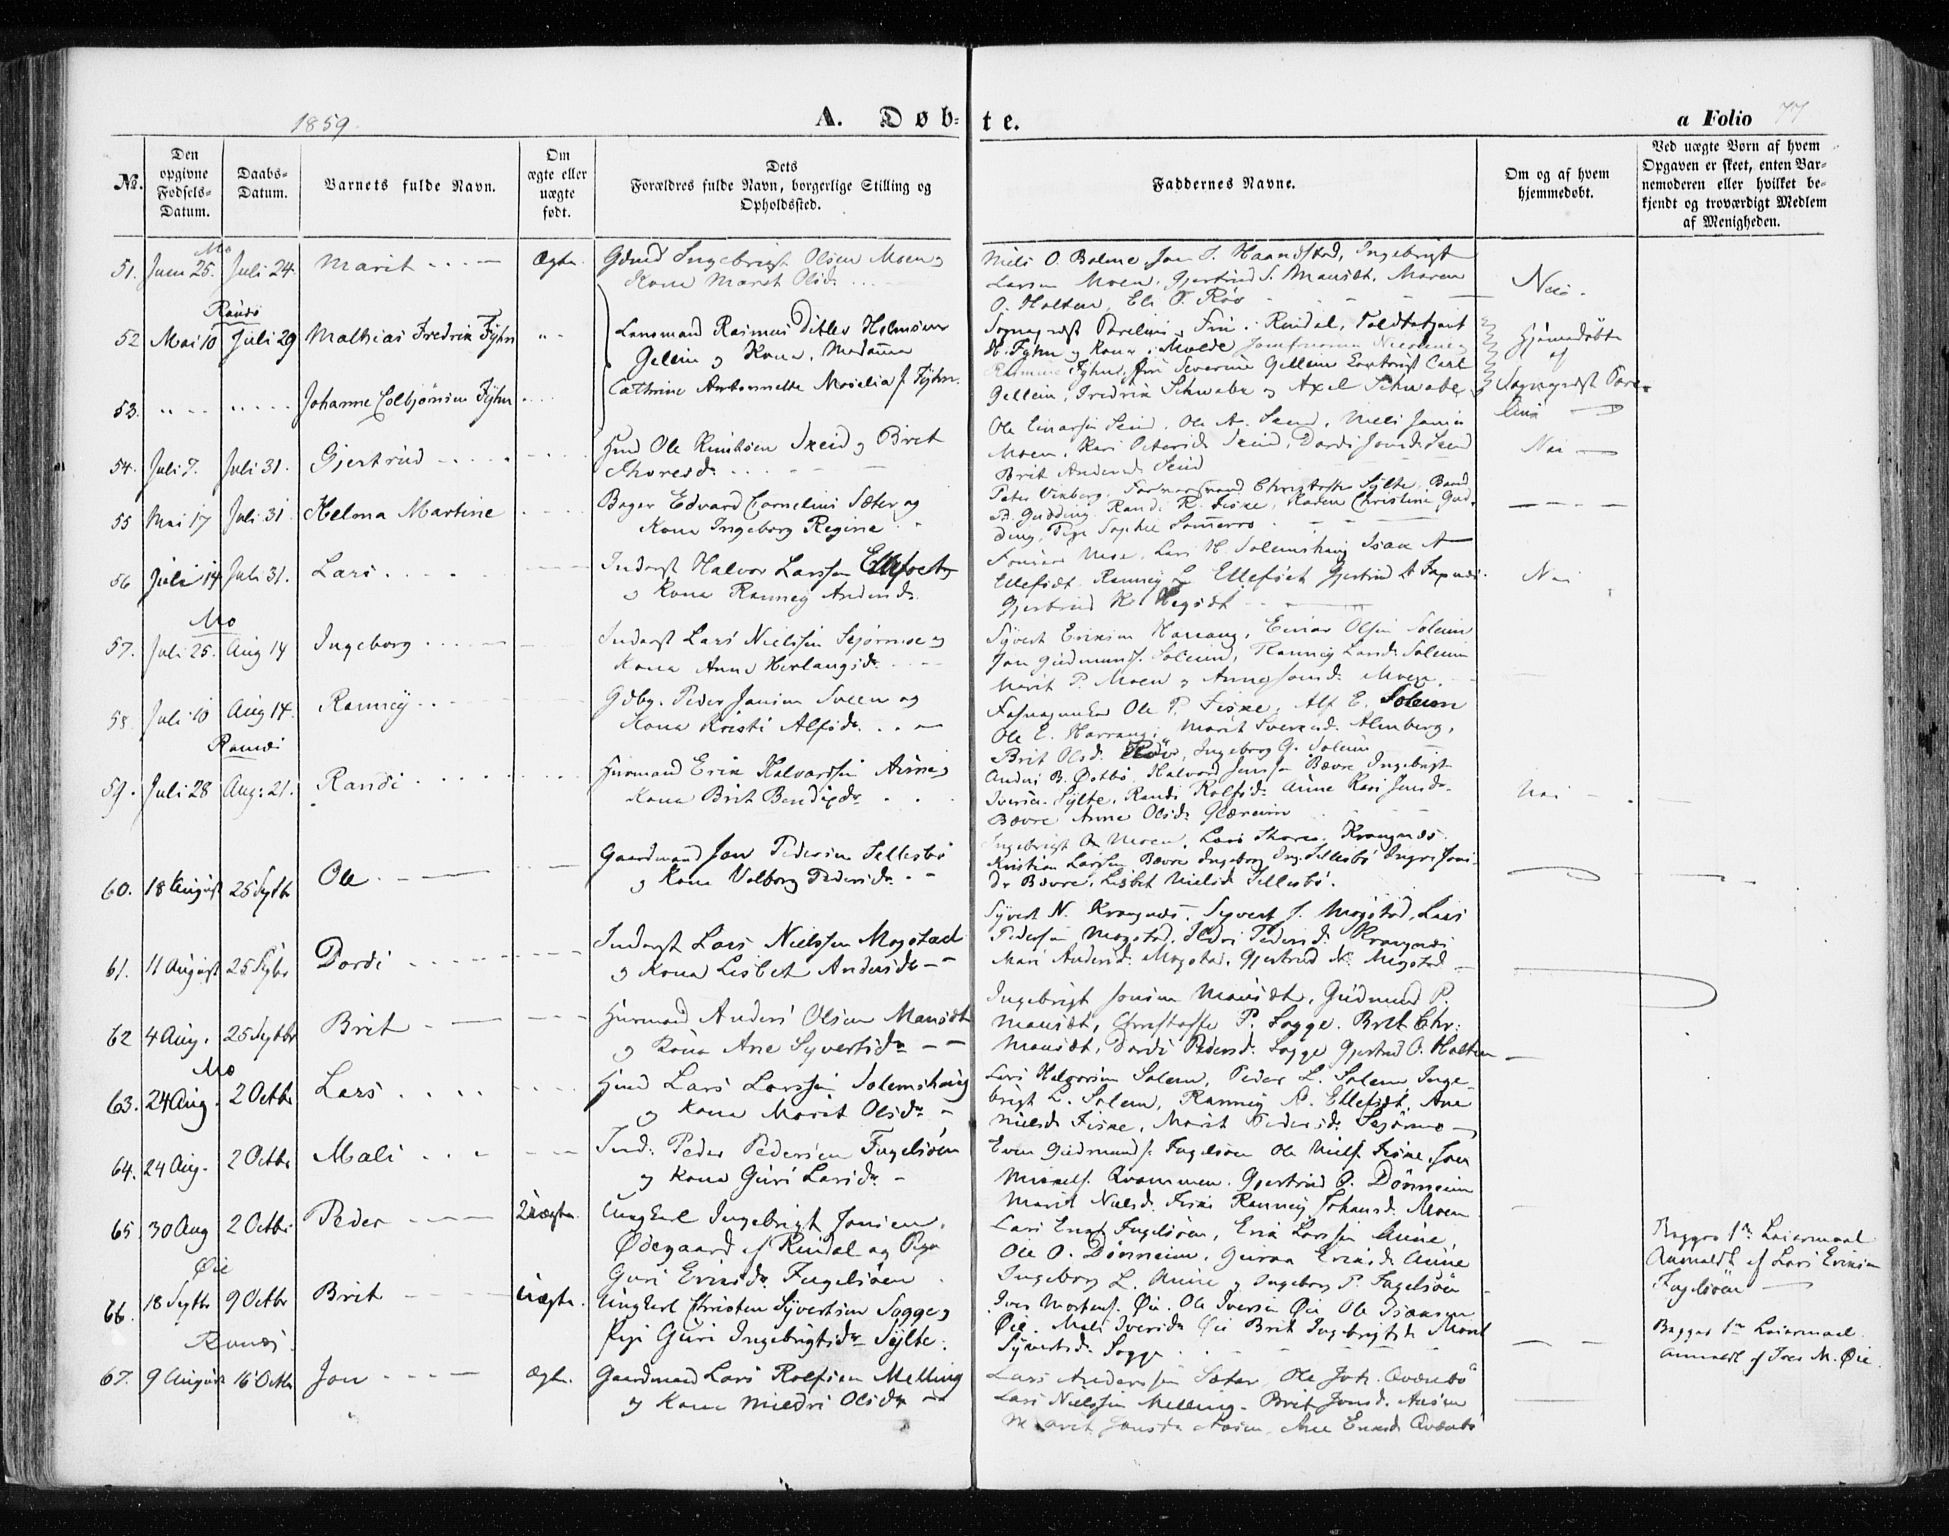 1859.
A. Døb-te.
a Folio 77
No.
Den opgivne Fødsels-Datum.
Daabs-Datum.
Barnets fulde Navn.
Om ægte eller uægte født.
Dets Forældres fulde Navn, borgerlige Stilling og Opholdssted.
Faddernes Navne.
Om og af hvem hjemmedøbt.
Ved uægte Børn af hvem Opgaven er skeet, enten Barnemoderen eller hvilket bekjendt og troværdigt Medlem af Menigheden.
Mo
51. Juni 25. Juli 24. Marit Ægte. Gdmd Ingebrigt Olsen Moen og
Kone Marit Olsdr
Niels O. Bolme, Jon I. Haandstad, Ingebrigt
Larsen Moen, Gjertrud S. Mauset, Maren
O. Holten, Eli O. Røv
Nei.
Ranæs
52 Mai 10 Juli 29 Mathias Fredrik Fyhn
Lensmand Rasmus Ditlev Holmsen
Gellein og Kone, Madame
Cathrine Antonnette Rosalia f. Fyhn.
Sognepræst Parelius, Frue, Rindal,
H. Fyhn og Kone, Molde, Jomfruerne
Fyhn, Severine Gellein, Carl
Gellein, Fredrik Schwabe og Axel Schwabe
Hjemmedøbte
af
Sognepræst Pare-
lius
53. Johanne Colbjørnsen Fyhn
54. Juli 7. Juli 31. Gjertrud
Hmd Ole Knudsen Skeid og Brit
Thoresdr
Ole Einarsen Skeid, Ole A. Skeid, Niels Jonsen
Moen, Kari Petersdr Skeid, Dordi Jonsdr Skeid
Brit Andersdr Skeid
Nei
55 Mai 17 Juli 31. Helma Martine
Bager Edvard Cornelius Sæter og
Kone Ingeborg Regine
Peter Vinberg, Christoffer Sylte,
Gudding, Randi R. Fiske, Karen Christine Gud-
ding, Pige Sophie Sommero
56 Juli 14 Juli 31. Lars
Inderst Halvor Larssen Ellefset
og Kone Ranneg Andersdr.
Moe, Lars H. Solemshaug Isak A
Ellefsæt, Ranneg L. Ellefsæt Gjertrud A
Gjertrud K. Hegset
Nei
Mo
57. Juli 25. Aug 14 Ingeborg
Inderst Lars Nielssen Skjørmoe og
Kone Anne Herlaugsdr.
Syvert Eriksen Harrang, Einar Olsen Solem
Jon Gudmunds. Solem, Ranneg Larsdr Solem
Marit P. Moen og Anne Jonsdr. Moen.
58. Juli 10 Aug 14. Ranneg
Gdbg. Peder Jonsen Sveen og
Kone Kristi Alfsdr.
Ole P. Fiske, Alf E. Solem
Ole E. Harrang, Marit Sversdr. Almberg,
Brit Olsd. Røv, Ingeborg G. Solem
Ranæs
59. Juli 28 Aug: 21. Randi
Huusmand Erik Halvorssen Aune og
Kone Brit Bendixdr.
Anders B. Østbø, Halvord Jonssen Bævre Ingebrigt
Iversen Sylte, Randi Rolfsdr. Aune Kari Jonsdr.
Bævre Anne Olsdr Glærem
Nei
60. 18 August 25 Septbr Ole
Gaardmand Jon Pedersen Settesbø
og Kone Volborg Pedersdr.
Ingebrigt O. Moen, Lars Thores. Krangnæs.
Kristian Larssen Bævre Ingeborg Ing. Settesbø Inger Jons-
Dr Bævre, Lisbet Nielsd. Settesbø.
61. 11 August 25 Septbr Dordi
Inderst Lars Nielssen Mogstad
og Kone Lisbet Andersdr
Syvert N. Krangnæs, Syvert J. Mogstad, Lars
Pedersen Mogstad, Ildri Pedersd. Krangnæs
Mari Andersd. Mogstad, Gjertrud N. Mogstad
62 4 Aug. 25 Septbr Brit
Huusmand Anders Olsen Mauset
og Kone Ane Syvertsdr
Ingebrigt Jonsen Mauset, Gudmund P.
Mauset, Christoffer P. Sogge, Brit Chr.
Mauset, Dordi Pedersd. Sogge Gjertrud O. Holten
Mo
63. 24 Aug. 2 Octbr Lars
Hmd Lars Larssen Solemshaug
og Kone Marit Olsdr
Lars Halvorsen Solem, Peder L. Solem Inge-
brigt L. Solem, Ranneg A. Ellefset, Ane
Nielsd Fiske, Marit Pedersdr. Skjørmo
64. 24 Aug. 2 Octbr Mali
Ind: Peder Pedersen Fugelsøen
og Kone Guri Larsdr
Even Gudmunds. Fugelsøen Ole Niels. Fiske, Jon
Mikkels. Kvammen. Gjertrud O. Dønnheim
Marit Nielsd. Fiske Ranneg Johansd. Moen
65 30 Aug 2 Octbr Peder Uægte.
Ungkarl Ingebrigt Jonsen,
Ødegaard af Rindal og Pige
Guri Eriksdr. Fugelsøen
Lars Fugelsøen, Erik Larssen Aune,
Ole O. Dønnheim, Guroe Eriksdr Aune
Ingeborg L. Aune og Ingeborg P. Fugelsøe
Begges 1ste Leiermaal
Anmeldt af Lars Eriksen
Fugelsøen
Øie
66. 18 Septbr 9 Octbr Brit Uægte.
Ungkarl Christen Syvertsen Sogge og
Pige Guri Ingebrigtsdr Sylte.
Iver Mortens. Øie, Ole Iversen Øie Ole Isaksen
Øie, Mali Iversdr Øie Brit Ingebrigtsdr Marit
Syvertsdr Sogge
Begges 1ste Leiermaal.
Anmeldt af Iver M. Øie.
Ranæs.
67. 9 August 16 Octbr Jon Ægte.
Gaardmand Lars Rolfsen Melling
og Kone Mildri Olsdr
Lars Anderssen Sæter, Ole Joh. Qvænbø
Lars Nielssen Melling, Brit Jonsd. Aasen
Marit Jonsdr Aasen, Ane Ericsdr Qvænbø